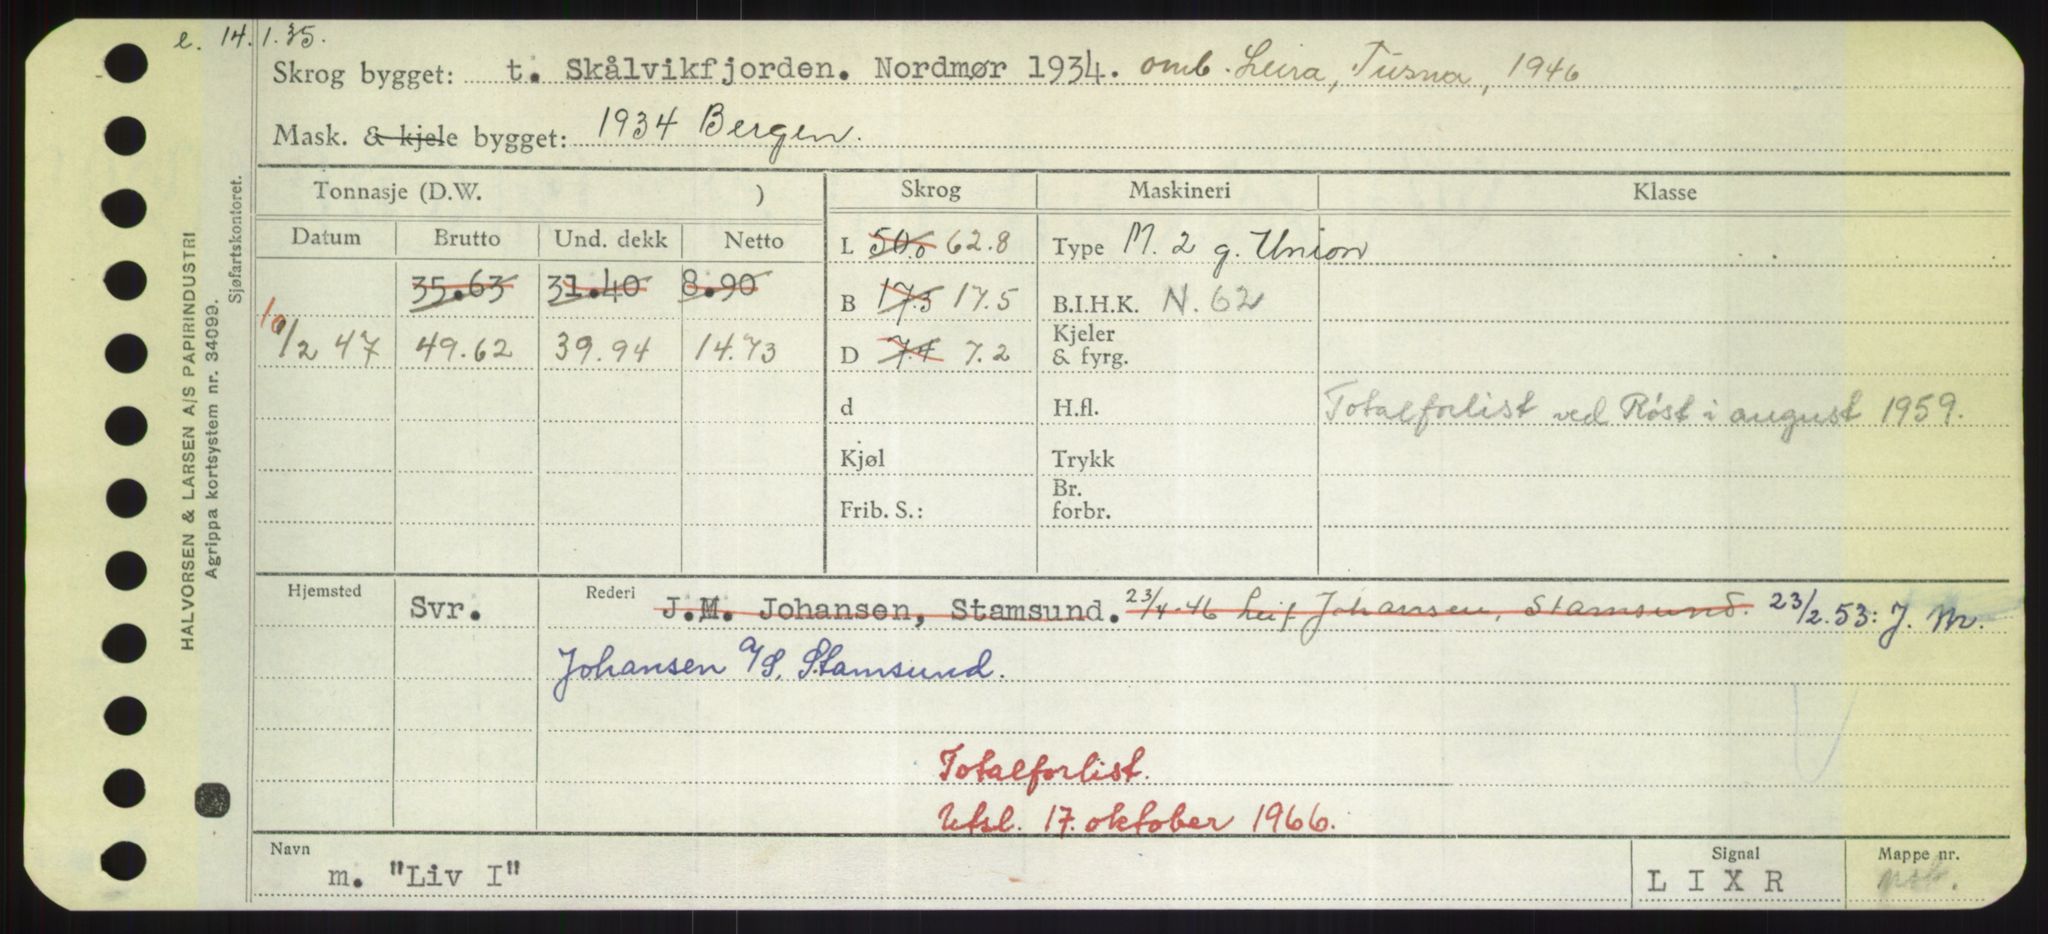 e. 14.1.35.
Skrog bygget: t. Skålvikfjorden. Nordmør 1934. omb. Leira, Tusna, 1946
Mask. & kjele bygget: 1934 Bergen.
HALVORSEN & LARSEN A/S PAPIRINDUSTRI
Agrippa kortsystem nr. 34099.
Sjøfartskontoret.
Tonnasje (D.W. ) Skrog Maskineri Klasse
Datum Brutto Und. dekk Netto L 50.0 62.8 Type M. 2 g. Union
35.63 31.40 8.90 B 17.3 17.5 B.I.H.K. N. 62
10/2 47 49.62 39.94 14.73 D 7.4 7.2 Kjeler & fyrg.
d H.fl. Totalforlist ved Røst i august 1959.
Kjøl Trykk
Frib. S.: Br. forbr.
Hjemsted Svr. Rederi J.M. Johansen, Stamsund. 23/4-46 Leif Johansen, Stamsund. 23/2.53: J. M.
Johansen A/S, Stamsund.
Totalforlist.
Utsl. 17. oktober 1966.
Navn Signal Mappe nr.
m. "Liv I" L I X R